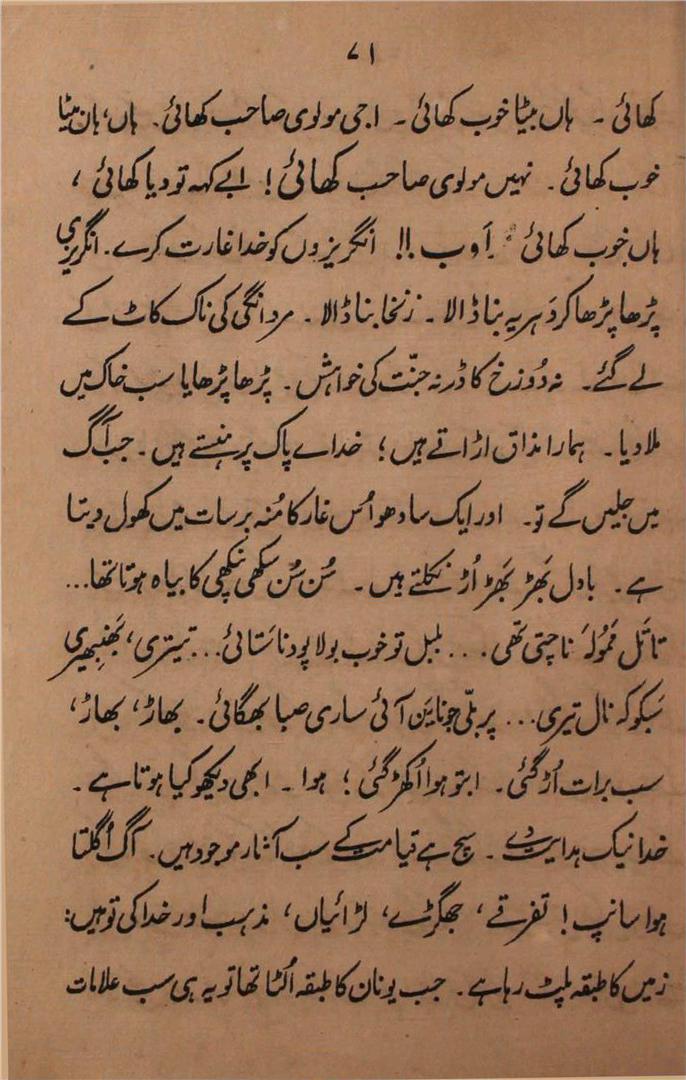 ۷۱
کھائی ۔ ہاں بیٹا خوب کھائی ۔ اجی مولوی صاحب کھائی۔ ہاں، ہان بیٹا
خوب کھائی ۔ نہیں مولوی صاحب کھائی! ابے کہہ تو دیا کھائی ،
ہاں خوب کھائی اَوب !! انگریزوں کو خدا غارت کرے۔ انگریزی
پڑھا پڑھا کر دَہریہ بنا ڈالا ۔ زنخا بنا ڈالا ۔ مردانگی کی ناک کاٹ کے
لے گئے ۔ نہ دُوزخ کا ڈر نہ جنّت کی خواہش ۔ پڑھا پڑھایا سب خاک میں
ملا دیا ۔ ہمارا مذاق اڑاتے ہیں؛ خداے پاک پر ہنستے ہیں ۔ جب آگ
میں جلیں گے تو ۔ اور ایک سادھو اُس غار کا مُنہ برسات میں کھول دیتا
ہے ۔ بادل بَھڑ بَھڑ اُڑ نکلتے ہیں ۔ سُن سُن سکھی نکھّی کا بیاہ ہوتا تھا...
تاتَل مَمُولہَ ناچتی تھی ... بلبل تو خوب بولا پودنا سَتائی... تیتری، بَھنبِھیری
سَبکو کہ نال تیری... پر بلّی جو نایَن آئی ساری صبا بھگائی ۔ بھاڑ، بھاڑ،
سب برات اُڑ گئی ۔ ابتو ہوا اُکھڑ گئی؛ ہوا ۔ ابھی دیکھو کیا ہوتا ہے ۔
خدا نیک ہدایت دے ۔ سچ ہے قیامت کے سب آثار موجود ہیں ۔ آگ اُگلتا
ہوا سانپ! تفرقے، جھگڑے، لڑائیاں، مذہب اور خدا کی توہین:
زمیں کا طبقہ پلٹ رہا ہے ۔ جب یونان کا طبقہ اُلٹا تھا تو یہ ہی سب علامات